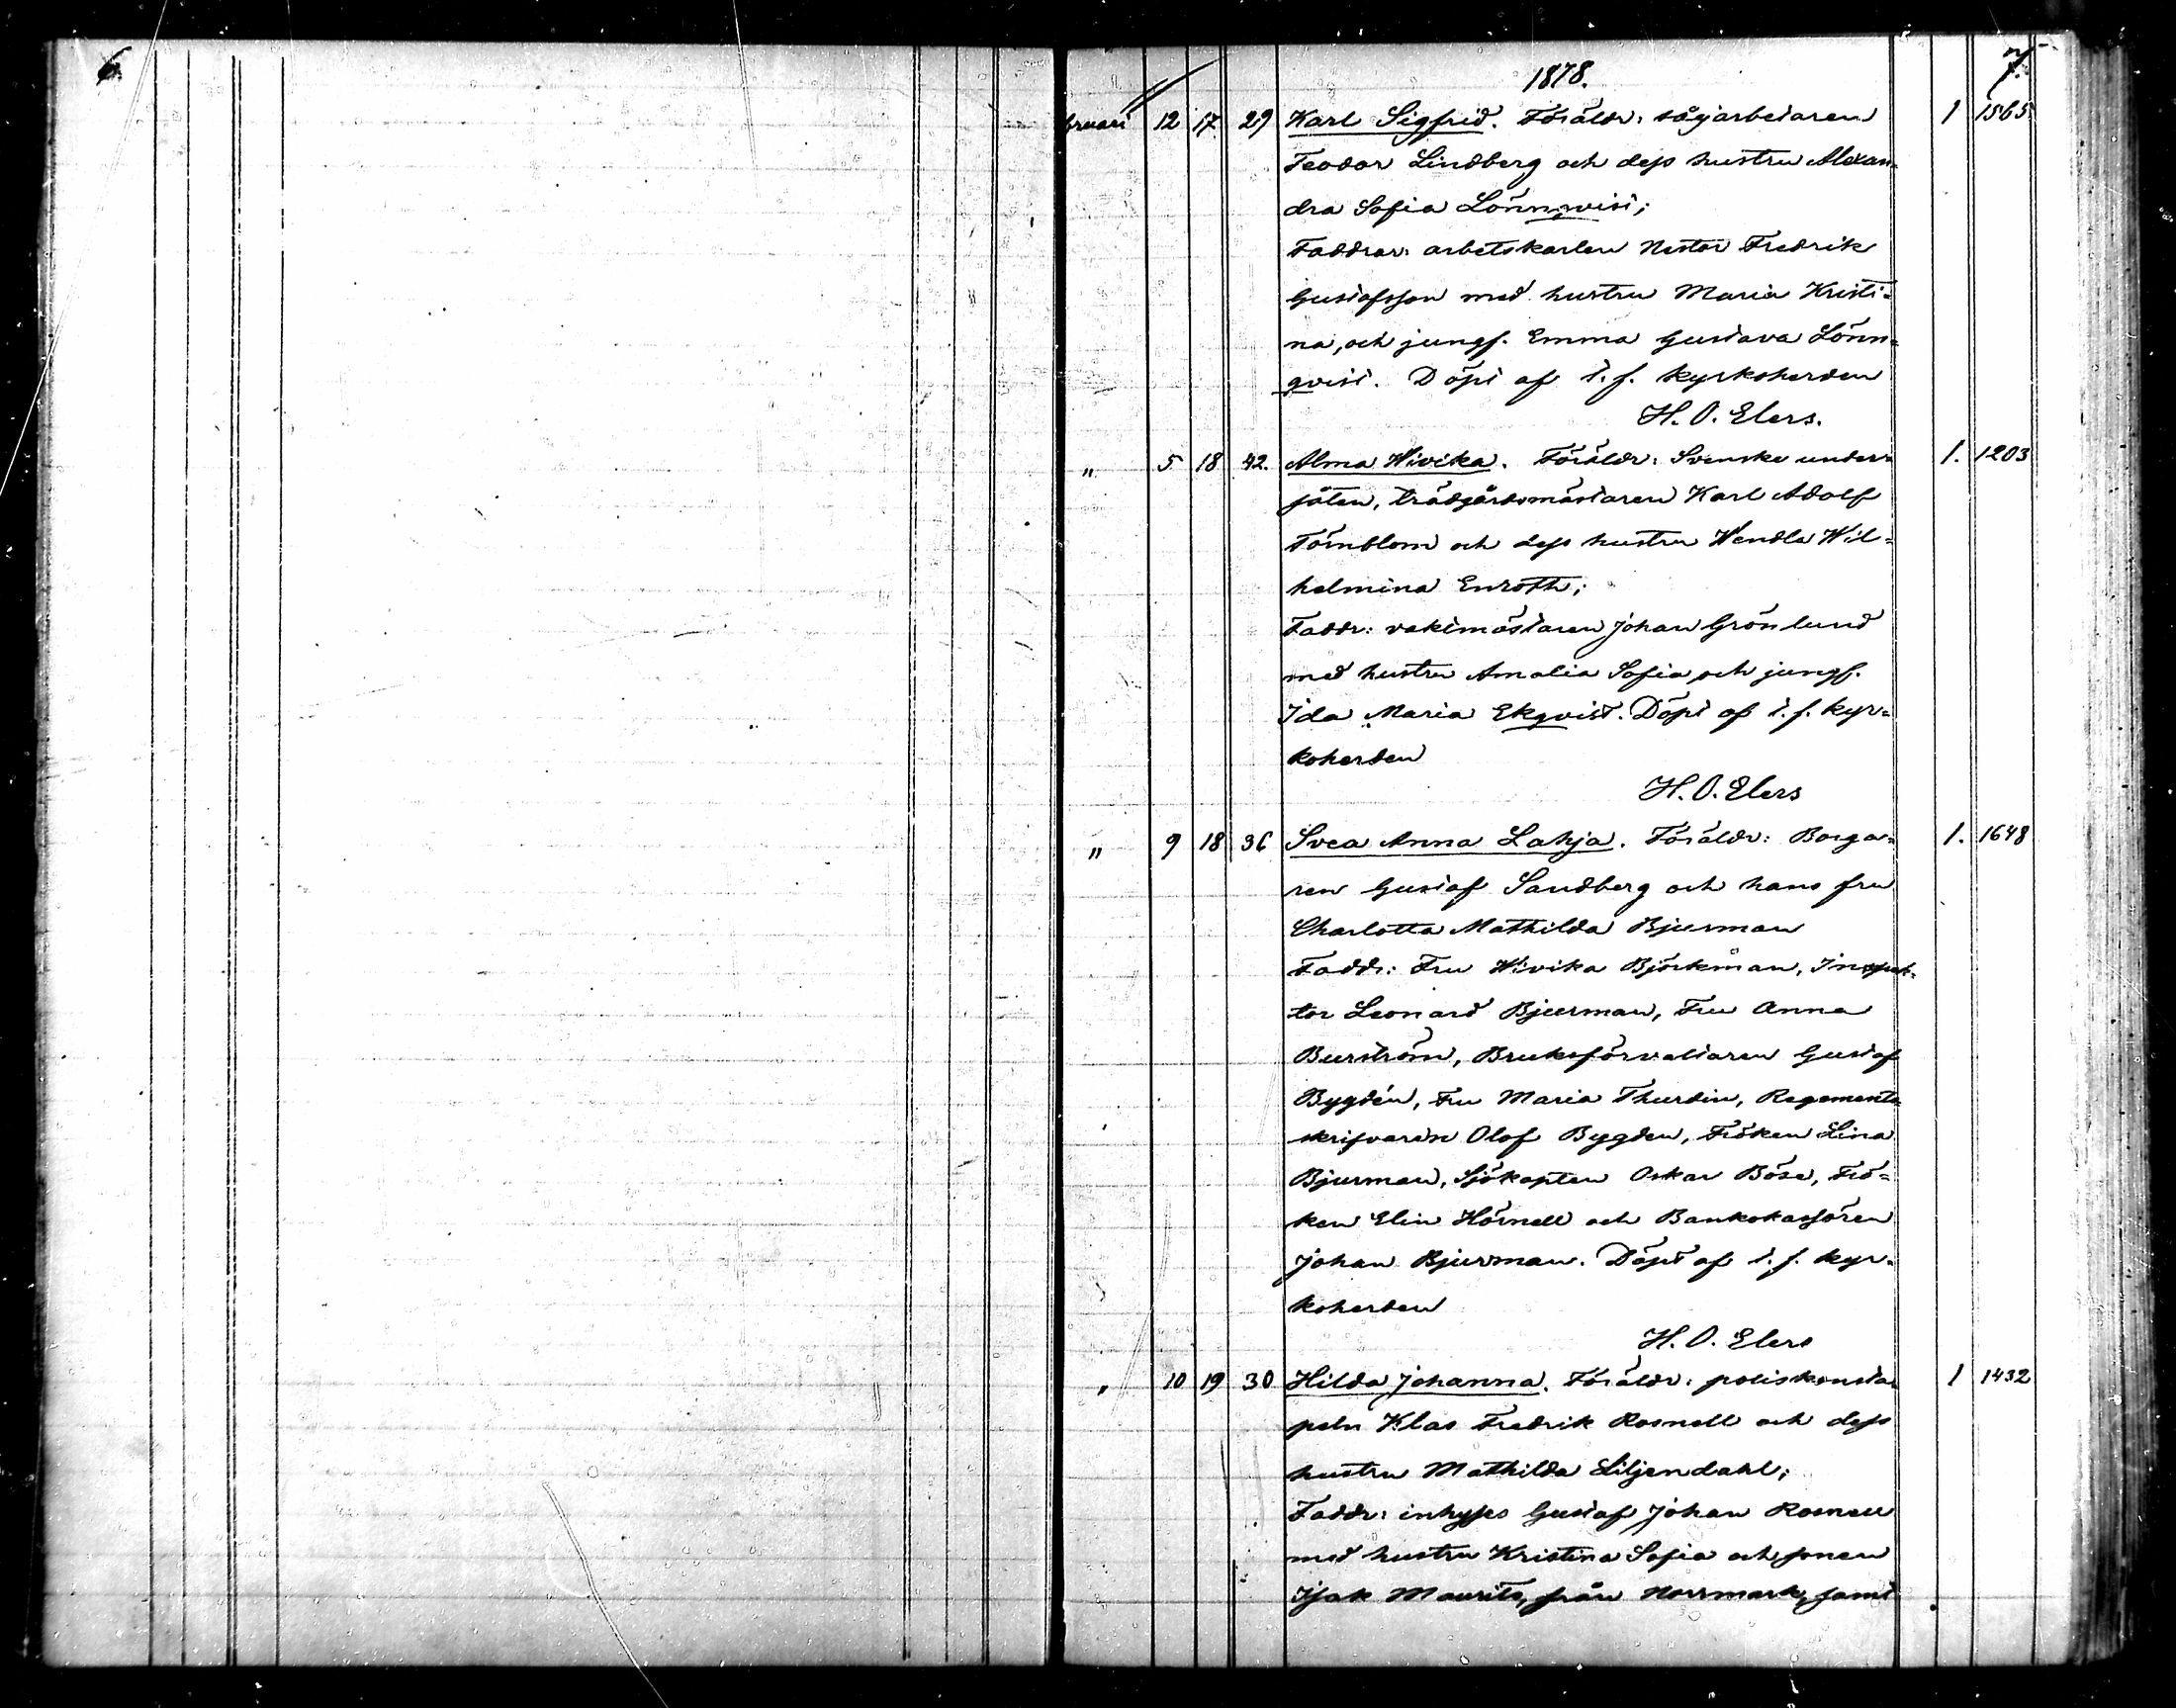 6.
7.
1878.
bruari 12 17 29 Karl Sigfrid. Föräldr: sågarbetaren 1 1565
Teodor Lindberg och dess hustru Alexan-
dra Sofia Lönnqvist;
Faddrar: arbetskarlen Nestor Fredrik
Gustafsson med hustru Maria Kristi-
na, och jungf. Emma Gustava Lönn-
qvist. Döpt af t. f. kyrkoherden
H. O. Elers.
" 5 18 42. Alma Wivika. Föräldr: Svenske under- 1. 1203
såten, trädgårdsmästaren Karl Adolf
Törnblom och dess hustru Wendla Wil-
helmina Enroth;
Faddr: vaktmästaren Johan Grönlund
med hustru Amalia Sofia och jungf.
Ida Maria Ekqvist. Döpt af t. f. kyr-
koherden
H. O. Elers
" 9 18 36 Svea Anna Lahja. Föräldr: Borga- 1. 1648
ren Gustaf Sandberg och hans fru
Charlotta Mathilda Bjurman
Faddr: Fru Wivika Björkman, Inspek-
tor Leonard Bjurman, Fru Anna
Burström, Bruksförvaltaren Gustaf
Bygdén, Fru Maria Thurdin, Regements
skrifvaren Olof Bygden, Fröken Lina
Bjurman, Sjökapten Oskar Böse, Frö-
ken Elin Hörnell och Bankokassören
Johan Bjurman. Döpt af t. f. kyr-
koherden
H. O. Elers
" 10 19 30 Hilda Johanna. Föräldr: poliskonsta- 1 1432
peln Klas Fredrik Rosnell och dess
hustru Mathilda Liljendahl;
Faddr: inhyses Gustaf Johan Rosnell
med hustru Kristina Sofia och sonen
Isak Maurits, från Norrmark, samt